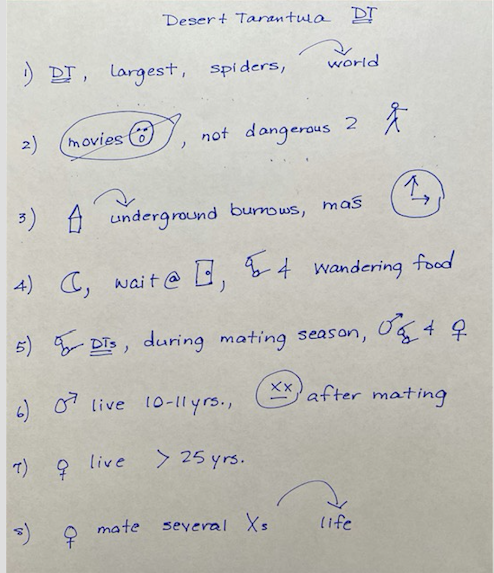 Desert Tarantula DT
1) DT, largest, spiders, world
2) movies, not dangerous 2
3) underground burrows, mas
4) , wait @ , 4 wandering food
5) DTs, during mating season, ♂ 4 ♀
6) ♂ live 10-11 yrs., xx after mating
7) ♀ live > 25 yrs.
8) ♀ mate several Xs life